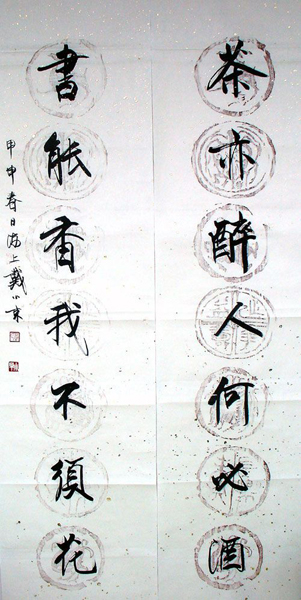 茶亦醉人何必酒
書能香我不須花
甲申春日海上戴小京